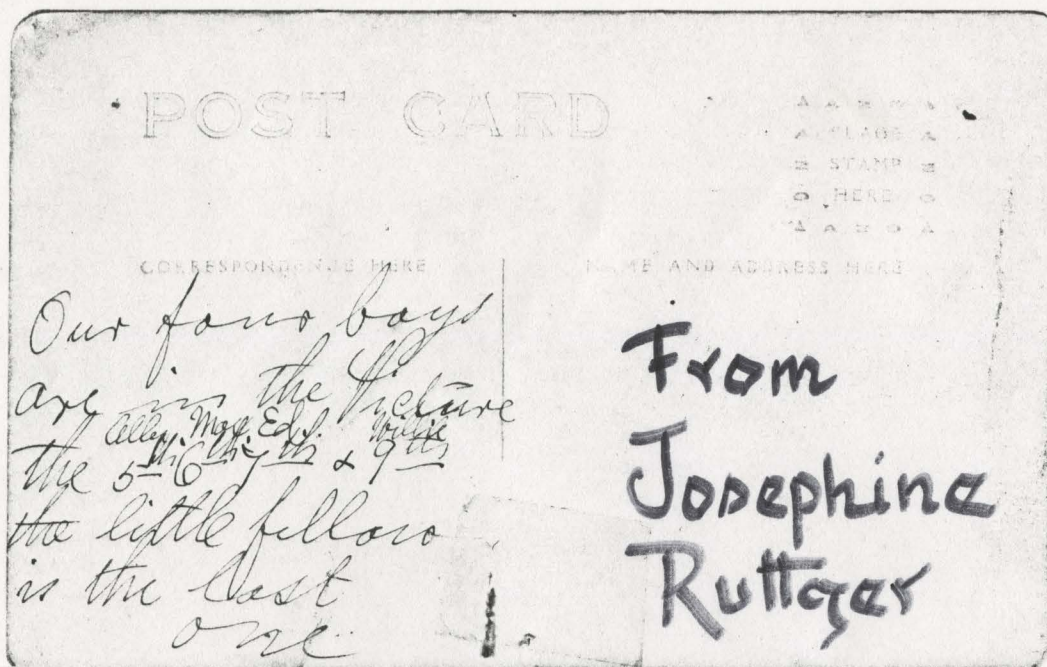 POST CARD
PLACE
STAMP
HERE
CORRESPONDENCE HERE
NAME AND ADDRESS HERE
Our four boys
are in the Picture
Allen Max. Ed. Willie
the 5th 6th 7th & 9th
the little fellow
is the last
one
From
Josephine
Ruttger